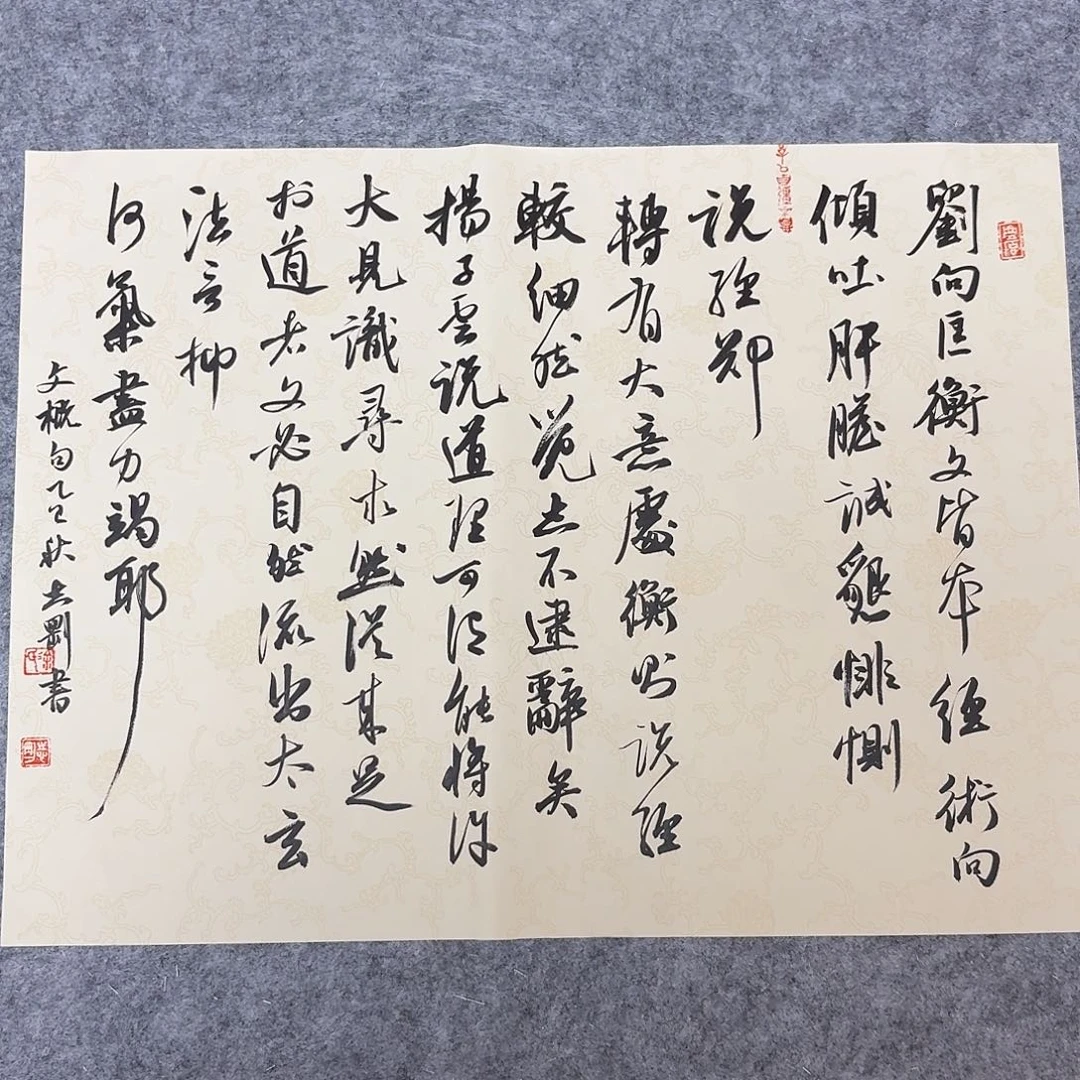 劉向匡衡文皆本經術向
傾吐肝膽誠懇悱惻
說經卻
轉有大意處衡則說經
較細然覺志不逮辭矣
揚子雲說道理可謂能將許
大見識尋求然從來足
於道者文必自然流出太玄
法言抑
何氣盡力竭耶
文概句乙巳秋志剛書